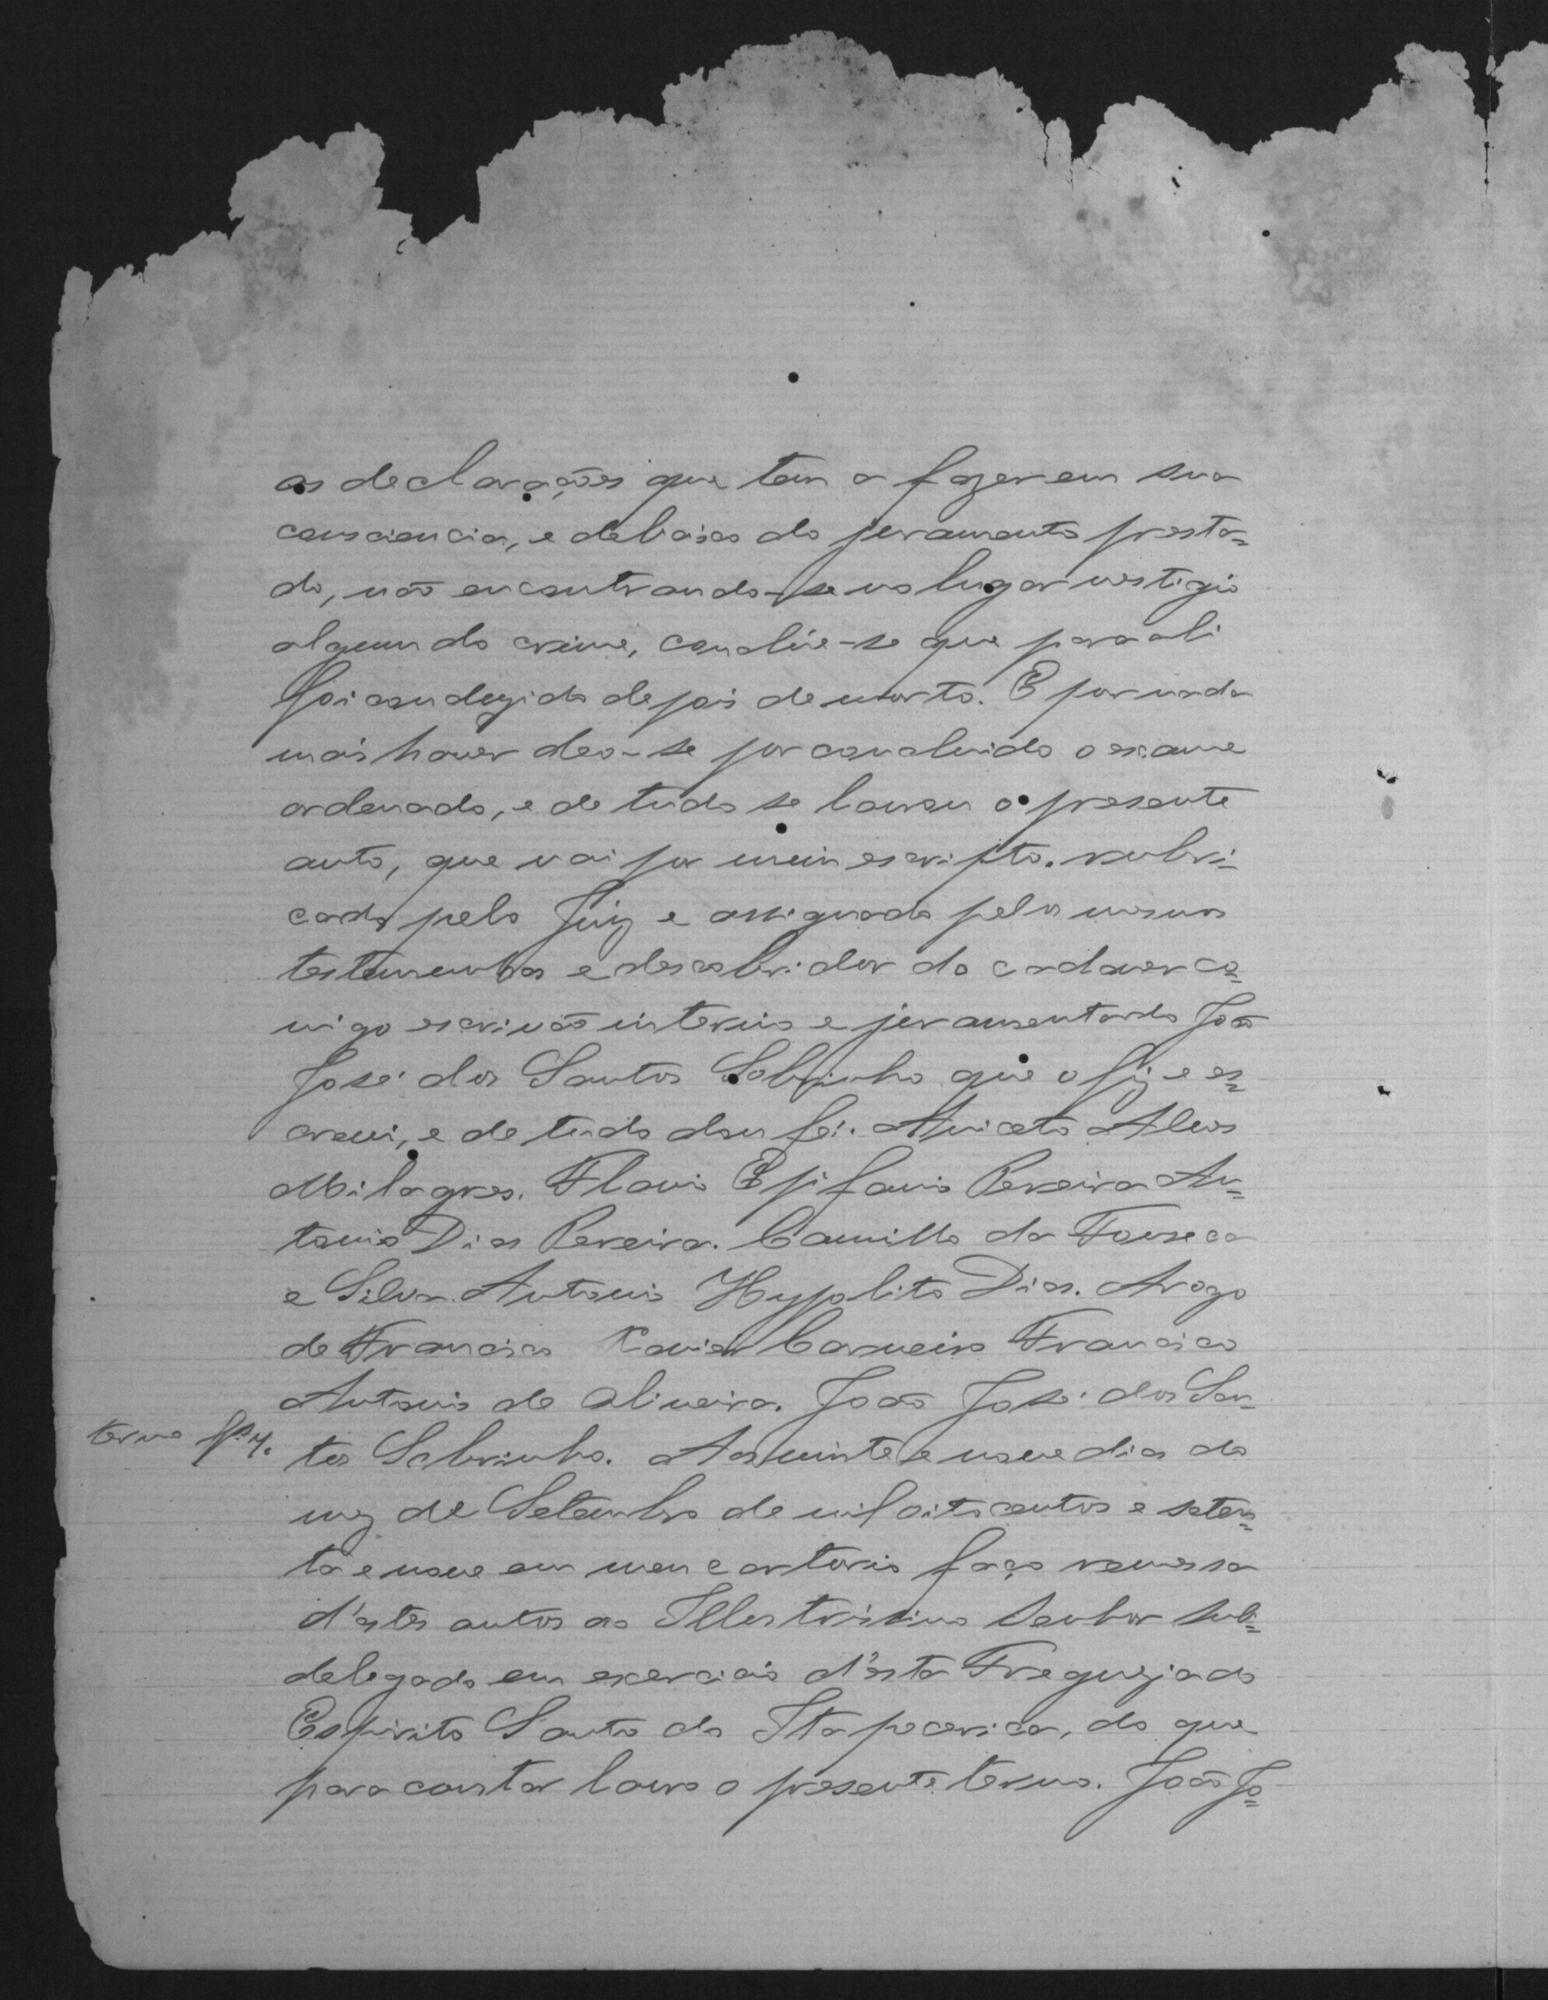 as declarações que tem a fazer em sua
consciencia, e debaixo do juramento presta=
do, não encontrando-se no lugar vestigio
algum do crime, conclúe-se que para ali
foi conduzido depois de morto. E por nada
mais haver deo-se por concluido o exame
ordenado, e de tudo se lavrou o presente
auto, que vai por mim escripto. rubri=
cado pelo Juiz e assignado pelos mesmos
testemunhas e descobridor do cadaver co=
migo escrivão interino e juramentado João
José dos Santos Sobrinho que o fiz e es=
crevi, e de tudo dou fé. Aniceto Alves
Milagres. Flavio Epifanio Pereira An=
tonio Dias Pereira. Camillo da Fonseca
e Silva. Antonio Hypolito Dias. Arogo
de Francisco Xavier Carneiro Francisco
Antonio de Oliveira. João José dos San=
termo fls. 4.
tos Sobrinho. Aos vinte e nove dias do
mez de Setembro de mil oitocentos e seten=
ta e nove em meu cartorio faço remessa
d'estes autos ao Illustrissimo Senhor sub=
delegado em exercicio d'esta Freguezia do
Espirito Santo da Itapecerica, do que
para constar lavro o presente termo. João Jo=